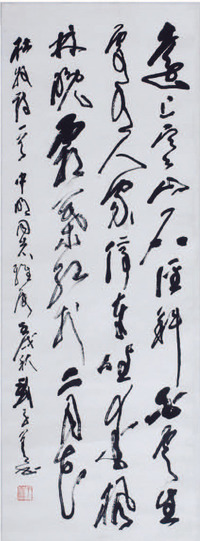 遠上寒山石徑斜白雲生
處有人家停車坐愛楓
林晚霜葉紅於二月花
杜牧詩一首 中明同志雅屬 戌秋